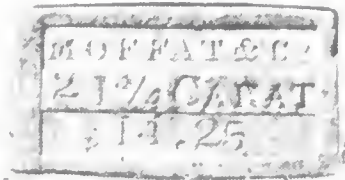 MOFFAT & CO
21 7/8 CARAT
$ 14.25